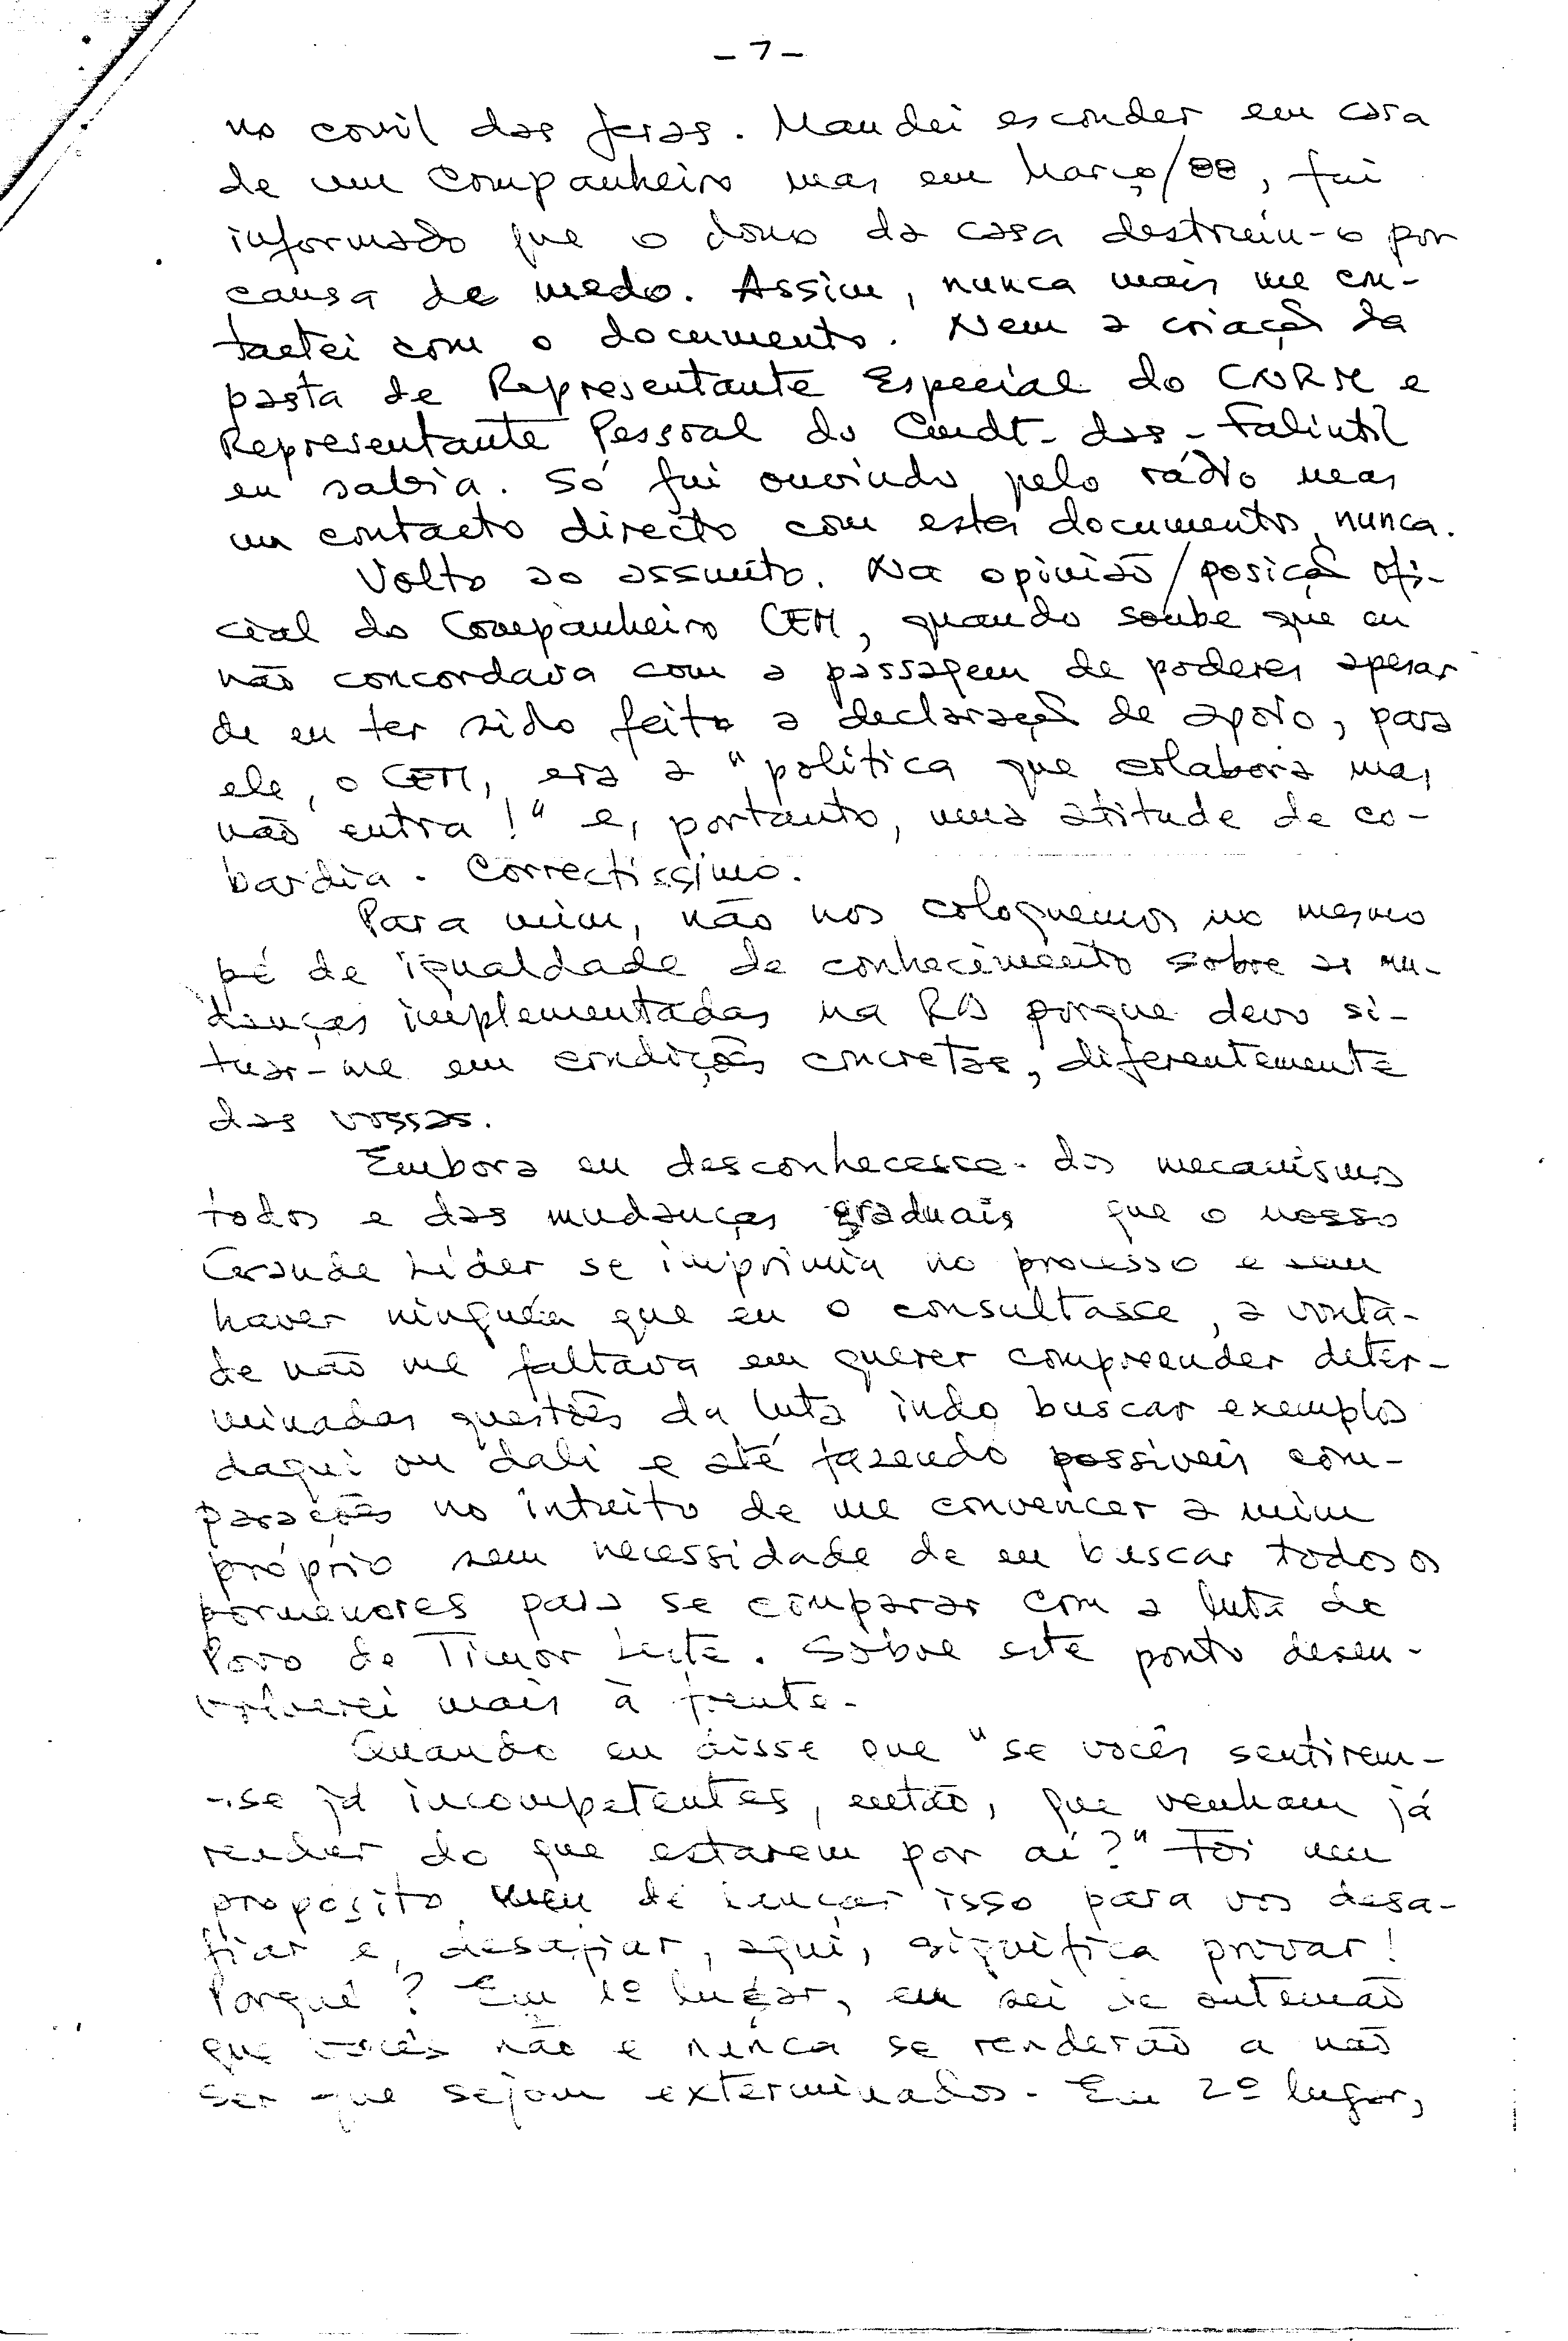 - 7 -
no covil das feras. Mandei esconder em casa
de um Companheiro mas em Março/88, fui
informado que o dono da casa destruiu-o por
causa de medo. Assim, nunca mais me con-
tactei com o documento. Nem a criação da
pasta de Representante Especial do CNRM e
Representante Pessoal do Cmdt- das - Falintil
eu sabia. Só fui ouvindo pelo rádio mas
um contacto directo com estes documentos, nunca.
Volto ao assunto. Na opinião/posição ofi-
cial do Companheiro CEM, quando soube que eu
não concordava com a passagem de poderes apesar
de eu ter sido feito a declaração de apoio, para
ele, o CEM, era a "política que colabora mas
não entra!" e, portanto, uma atitude de co-
bardia. Correctíssimo.
Para mim, não nos coloquemos no mesmo
pé de igualdade de conhecimento sobre as mu-
danças implementadas na RA porque devo si-
tuar-me em condições concretas, diferentemente
das vossas.
Embora eu desconhecesse dos mecanismos
todos e das mudanças graduais que o nosso
Grande Líder se imprimia no processo e sem
haver ninguém que eu o consultasse, a vonta-
de não me faltava em querer compreender deter-
minadas questões da luta indo buscar exemplos
daqui ou dali e até fazendo possíveis com-
parações no intuito de me convencer a mim
próprio sem necessidade de eu buscar todos os
pormenores para se comparar com a luta de
Povo de Timor Leste. Sobre este ponto desen-
volverei mais à frente.
Quando eu disse que "se vocês sentirem-
-se já incompetentes, então, que venham já
render do que estarem por aí?" Foi um
propósito meu de lançar isso para vos desa-
fiar e, desafiar, aqui, significa provar!
Porquê? Em 1º lugar, eu sei de antemão
que vocês não e nunca se renderão a não
ser que sejam exterminados. Em 2º lugar,